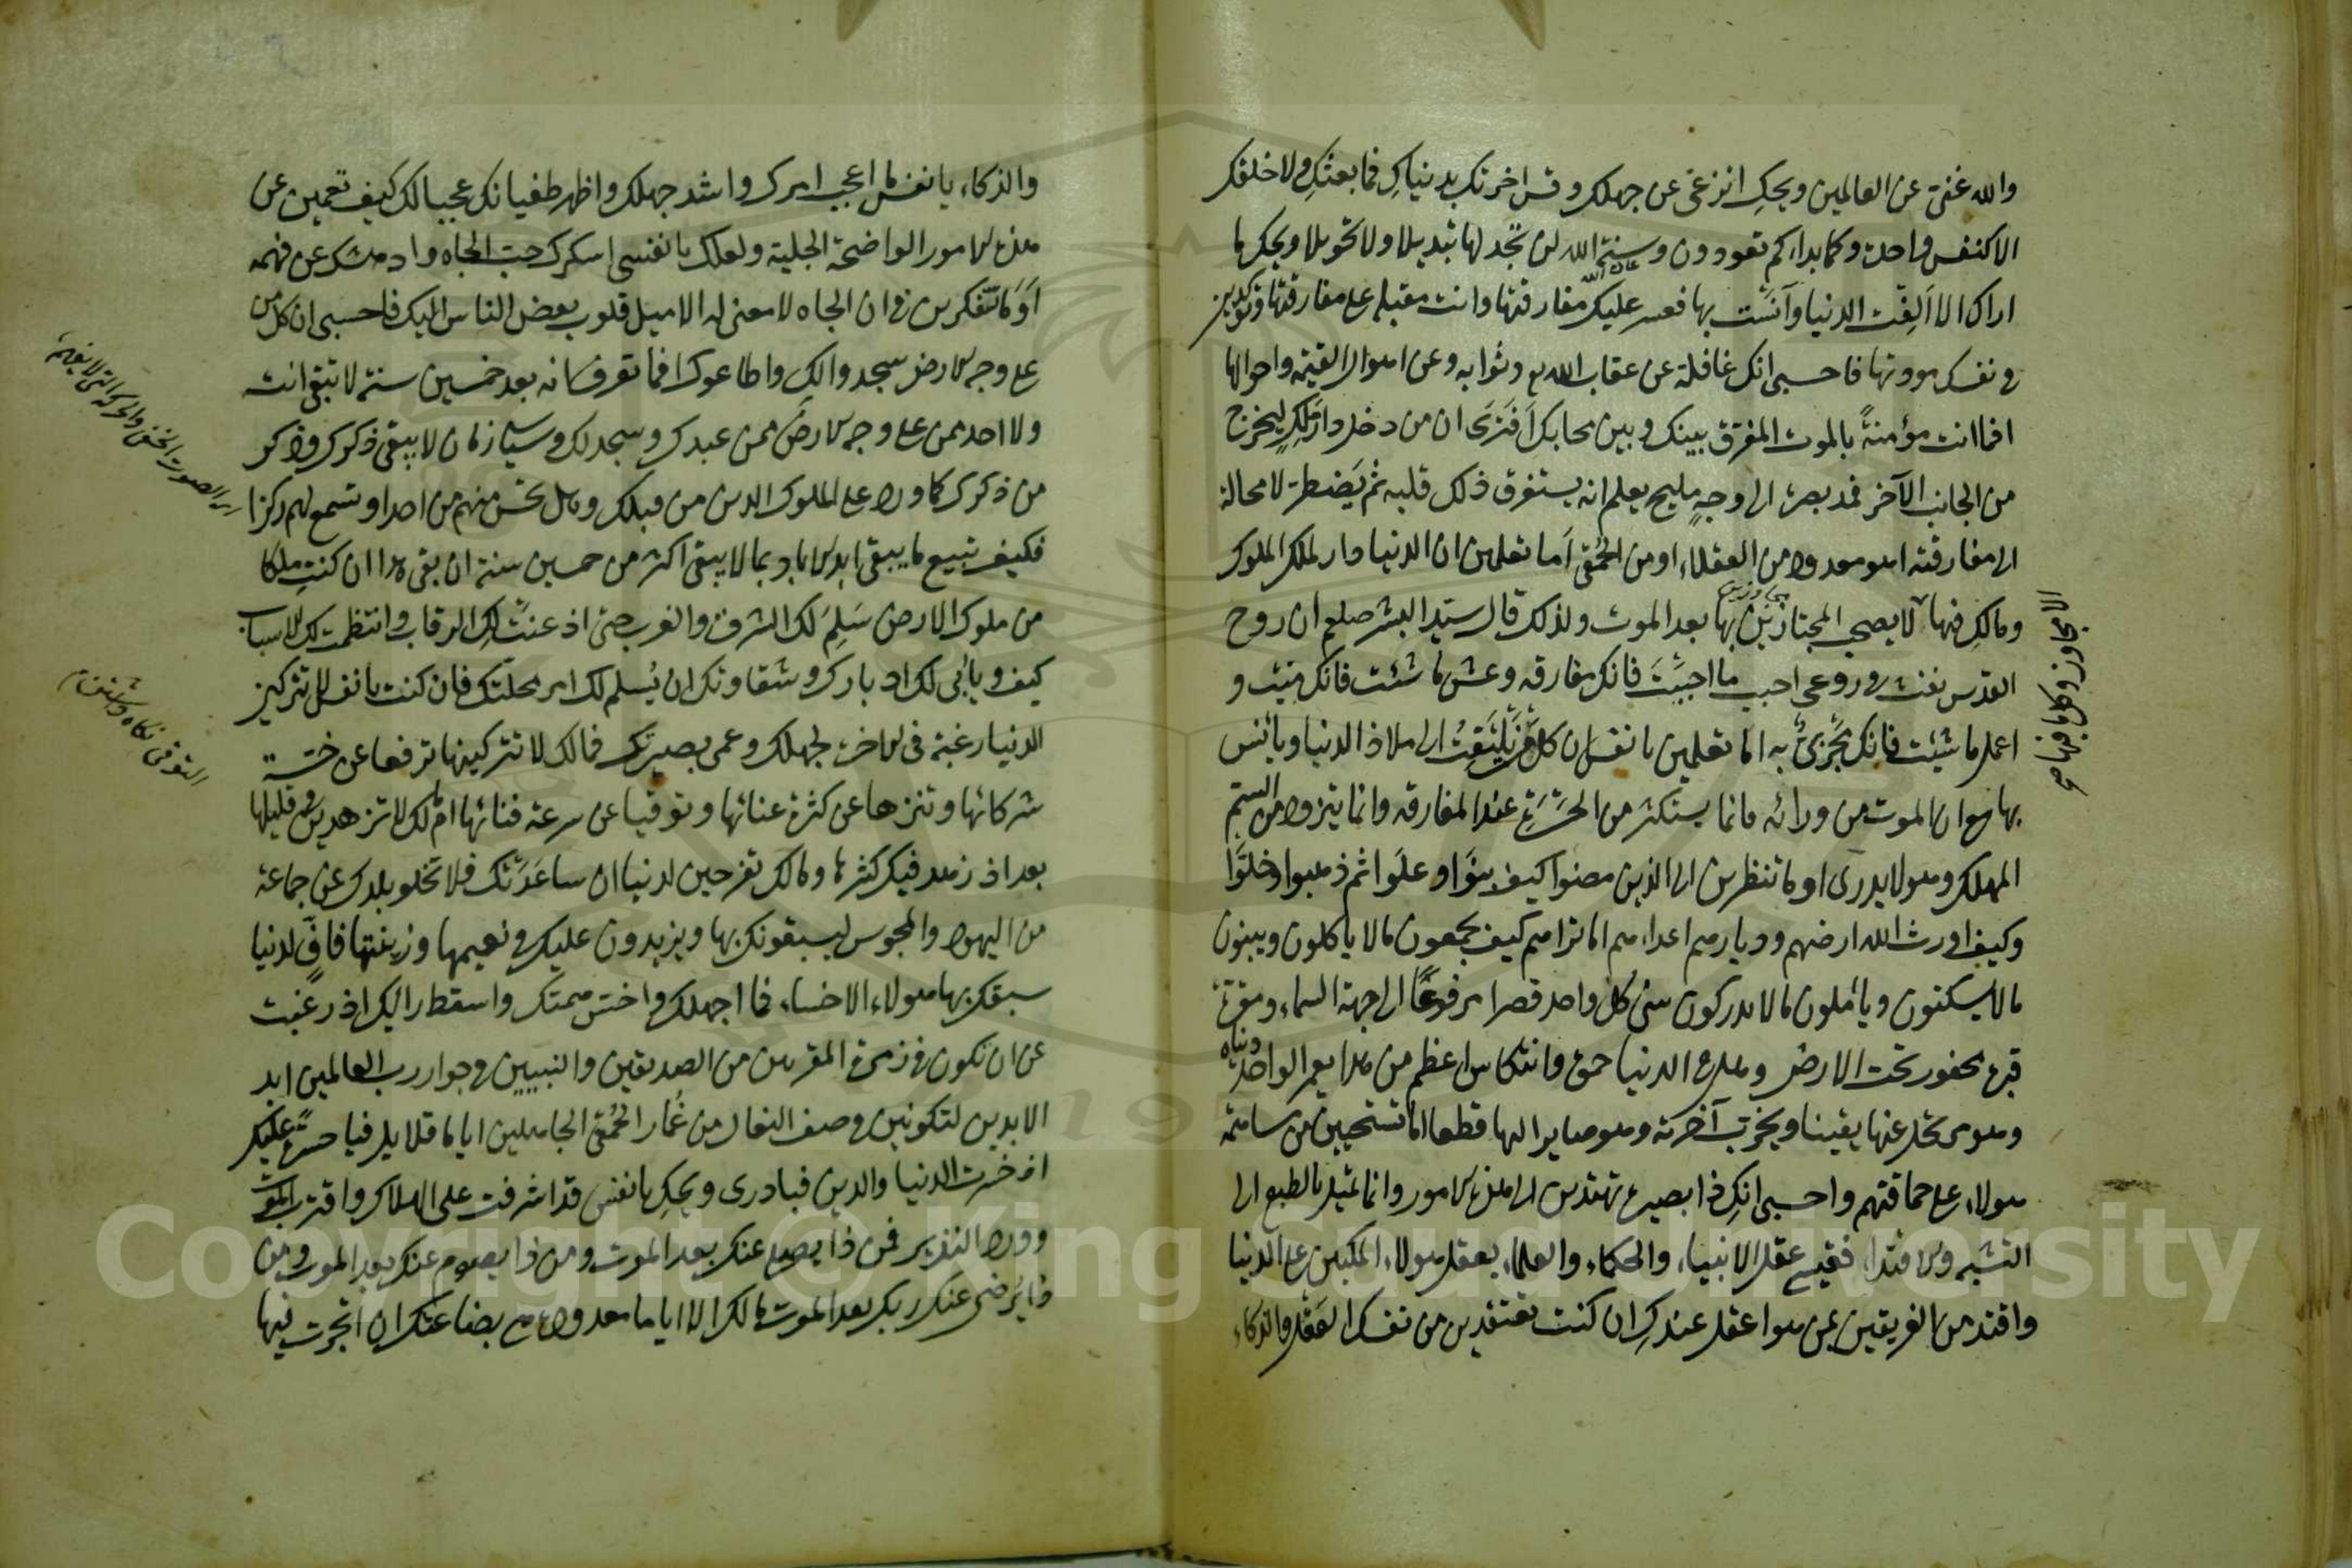 والله غنى عن العالمين ويحكِ انزعى عن جهلك وقسى اخرتك بدنياكِ فما بعثكِ ولا خلقكِ
الا كنفس واحدة وكما بداءكم تعودون وسنة الله لن تجد لها تبديلا ولا تحويلا ويحك ما
عادة الله
اراك الا الِفْتِ الدنيا وآنستِ بها فعسر عليك مفارقتها وانت مقبلة على مفارقتها وتؤكدين
فى نفسك مودتها فاحسبى انك غافلة عن عقاب الله وثوابه وعن اهوال القيمة واحوالها
افما انت مؤمنةً بالموت المفرق بينك وبين محابك اَفَتَرَى ان من دخل دار مَلِكٍ ليخرج
من الجانب الآخر فمد بصره الى وجهٍ مليح يعلم انه يستغرق ذلك قلبه ثم يَضطر لا محالة
الى مفارقته اهو معدود من العقلاء او من الحُمْقى اَما تعلمين ان الدنيا دار لملك الملوك
ومالكِ فيها لا يصحب المجتازين بها بعد الموت ولذلك قال سيد البشر صلعم ان روح
القدس نفث فى روعى احبب ما احببتَ فانك مفارقه وعش ما شئت فانك ميّت و
اعمل ما شئت فانك تُجْزَىٰ به اما تعلمين يا نفس ان كل من يَلْتَفِتُ الى ملاذ الدنيا ويأنس
بها مع ان الموت من ورائه فانما يستكثر من الحَسْرَةِ عند المفارقة وانما يتزود من السم
المهلك وهو لا يدرى او ما تنظرين الى الذين مضوا كيف بَنَوْا وعَلَوا ثم ذهبوا وخلَوْا
وكيف اورث الله ارضهم وديارهم اعداءهم اما تراهم كيف يجمعون ما لا ياكلون ويبنون
ما لا يسكنون ويأملون ما لا يدركون يبنى كل واحد قصرا مرفوعًا الى جهة السماء ومقره
قبر محفور تحت الارض وهل فى الدنيا حمق وانتكاس اعظم من هذا يعمر الواحد دنياه
وهو مرتحل عنها يقينا ويخرب آخرته وهو صاير اليها قطعا اما تستحيين من مساعدة
هولاء على حماقتهم واحسبى انكِ ذا بصيرة تهتدين الى هذه الامور وانما تميل بالطبع الى
التشبه والاقتداء فقيسى عقل الانبياء والحكماء والعلماء بعقل هولاء المكبين على الدنيا
واقتد من الفريقين بمن هو اعقل عندكِ ان كنت تعتقدين من نفسك العقل والذكاء
والذكاء يا نفس ما اعجب امرك واشد جهلك واظهر طغيانك عجبا لك كيف تعمين عن
هذه الامور الواضحة الجلية ولعلك يا نفسى اسكرك حب الجاه وادهشك عن فهمه
اَوَما تتفكرين فى ان الجاه لا معنى له الا ميل قلوب بعض الناس اليك فاحسبى ان كل من
على وجه الارض سجدوا لكِ واطاعوك افما تعرف انه بعد خمسين سنة لا تبقى انت
ولا احد ممن على وجه الارض ممن عبدك وسجد لك وسياتى زمان لا يبقى ذكرك ولا ذكر
من ذكرك كما ورد على الملوك الذين من قبلك وهل تحس منهم من احد او تسمع لهم ركزا
فكيف تبيع ما يبقى ابد الاباد بما لا يبقى اكثر من خمسين سنة ان بقى هذا ان كنتِ ملكا
من ملوك الارض سَلِمَ لك الشرق والغرب حتى اذعنتْ لك الرقاب وانتظمت لك الاسباب
كيف ويأبى لك ادبارك وشقاوتك ان يُسلم لك امر محلّتك فان كنت يا نفس لا تتركين
الدنيا رغبة فى الاخرة لجهلك وعمى بصيرتك فمالك لا تتركينها ترفعا عن خسّة
شركائها وتنزها عن كثرة عنائها وتوقيا عن سرعة فنائها ام مالك لا تزهدين فى قليلها
بعد اذ زهد فيك كثيرها ومالك تفرحين لدنيا ان ساعَدَتْك فلا تخلو بلدك عن جماعة
من اليهود والمجوس ليسبقونك بها ويزيدون عليك فى نعيمها وزينتها فاُفٍّ لدنيا
سبقك بها هولاء الاخساء فما اجهلك واخس همتك واسقط رايك اذ رغبت
عن ان تكون فى زمرة المقربين من الصديقين والنبيين فى جوار رب العالمين ابد
الابدين لتكونين فى صف النعال من غُمار الحُمْقى الجاهلين اياما قلايل فيا حسرةً عليك
اذ خسرت الدنيا والدين فبادرى ويحكِ يا نفس قد اشرفت على الهلاك واقترب الموت
وورد النذير فمن ذا يصلى عنك بعد الموت ومن ذا يصوم عنك بعد الموت ومن
ذا يُرضى عنك ربك بعد الموت مالك الا اياما معدودة هى بضاعتك ان اتجرت فيها